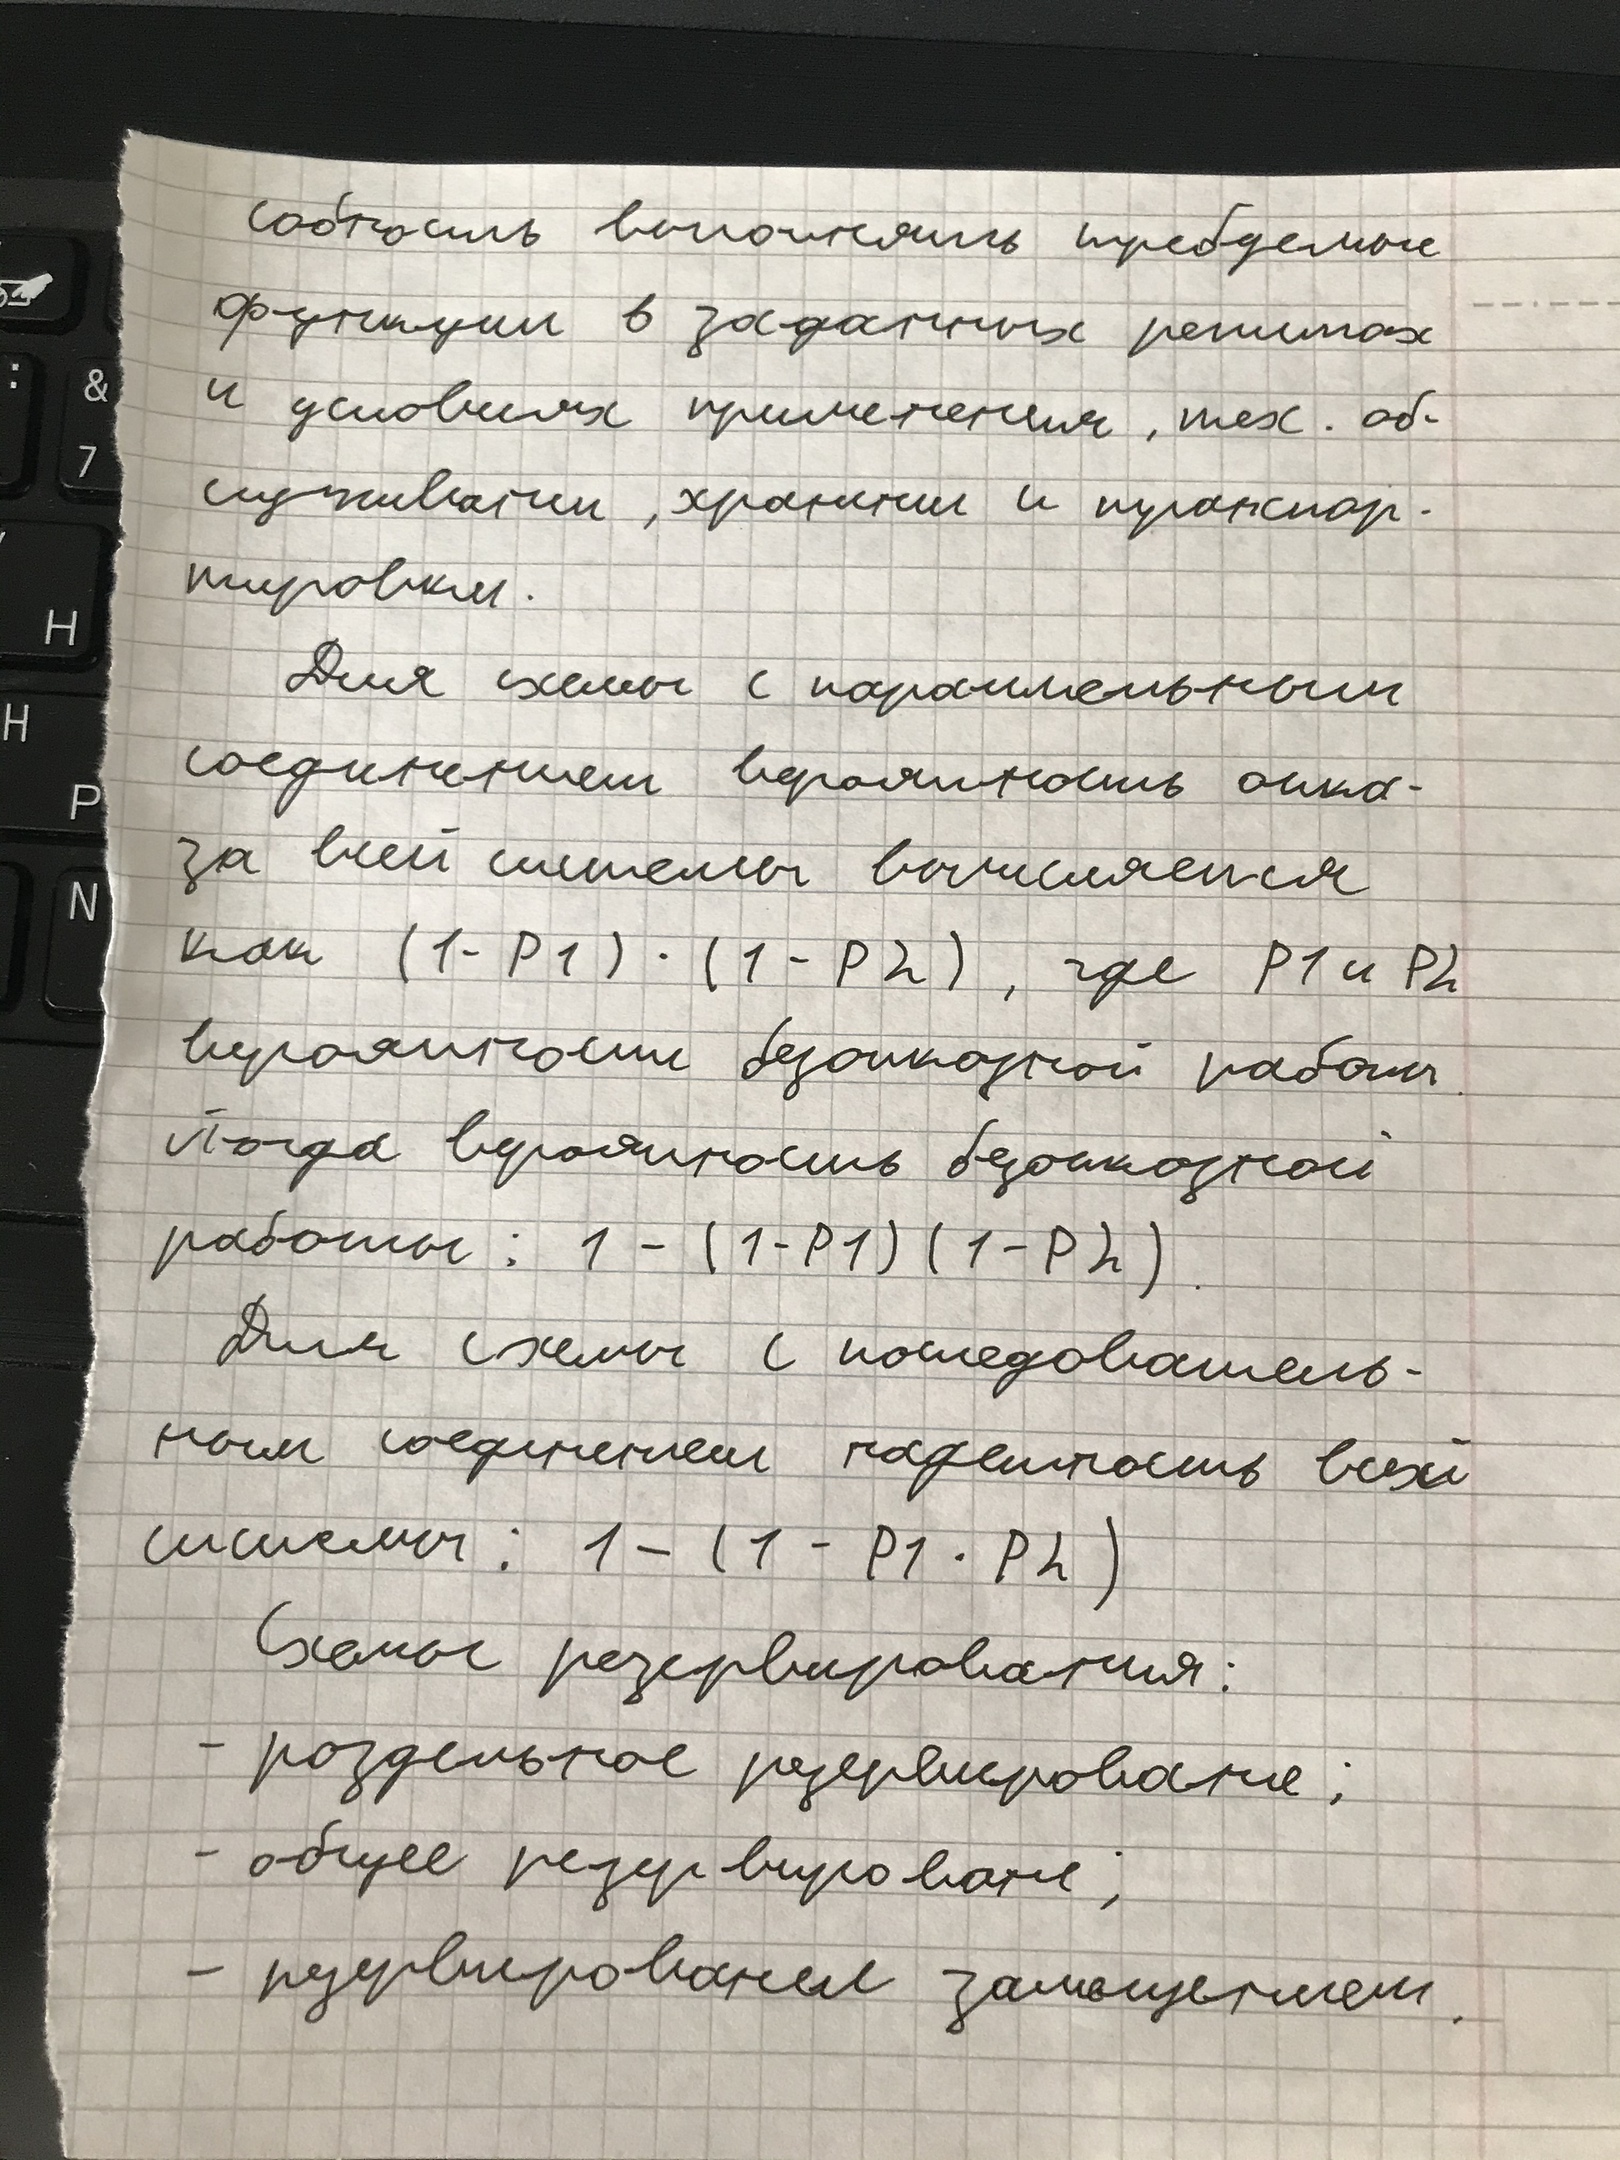 собность выполнять требуемые
функции в заданных режимах
и условиях применения, тех. об-
служивании, хранении и транспор-
тировки.
Для схемы с параллельным
соединением вероятность отка-
за всей системы вычисляется
как (1-P1)·(1-P2), где P1 и P2
вероятности безотказной работы.
Тогда вероятность безотказной
работы: 1-(1-P1)(1-P2).
Для схемы с последователь-
ным соединением надежность всей
системы: 1-(1-P1·P2)
Схемы резервирования:
- раздельное резервирование;
- общее резервирование;
- резервирование замещением.
&
7
:
H
H
P
N